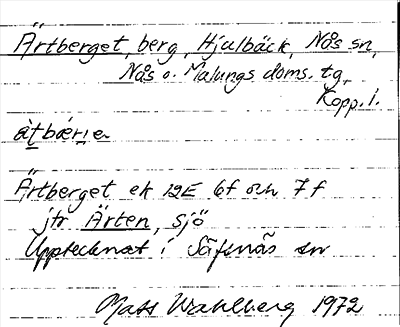 Ärtberget, berg, Hjulbäck, Nås sn,
Nås o. Malungs doms. tg,
Kopp. l.
Ärtberget ek 12E 6f och 7f
jfr Ärten, sjö
Upptecknat i Säfsnäs sn
Mats Wahlberg 1972